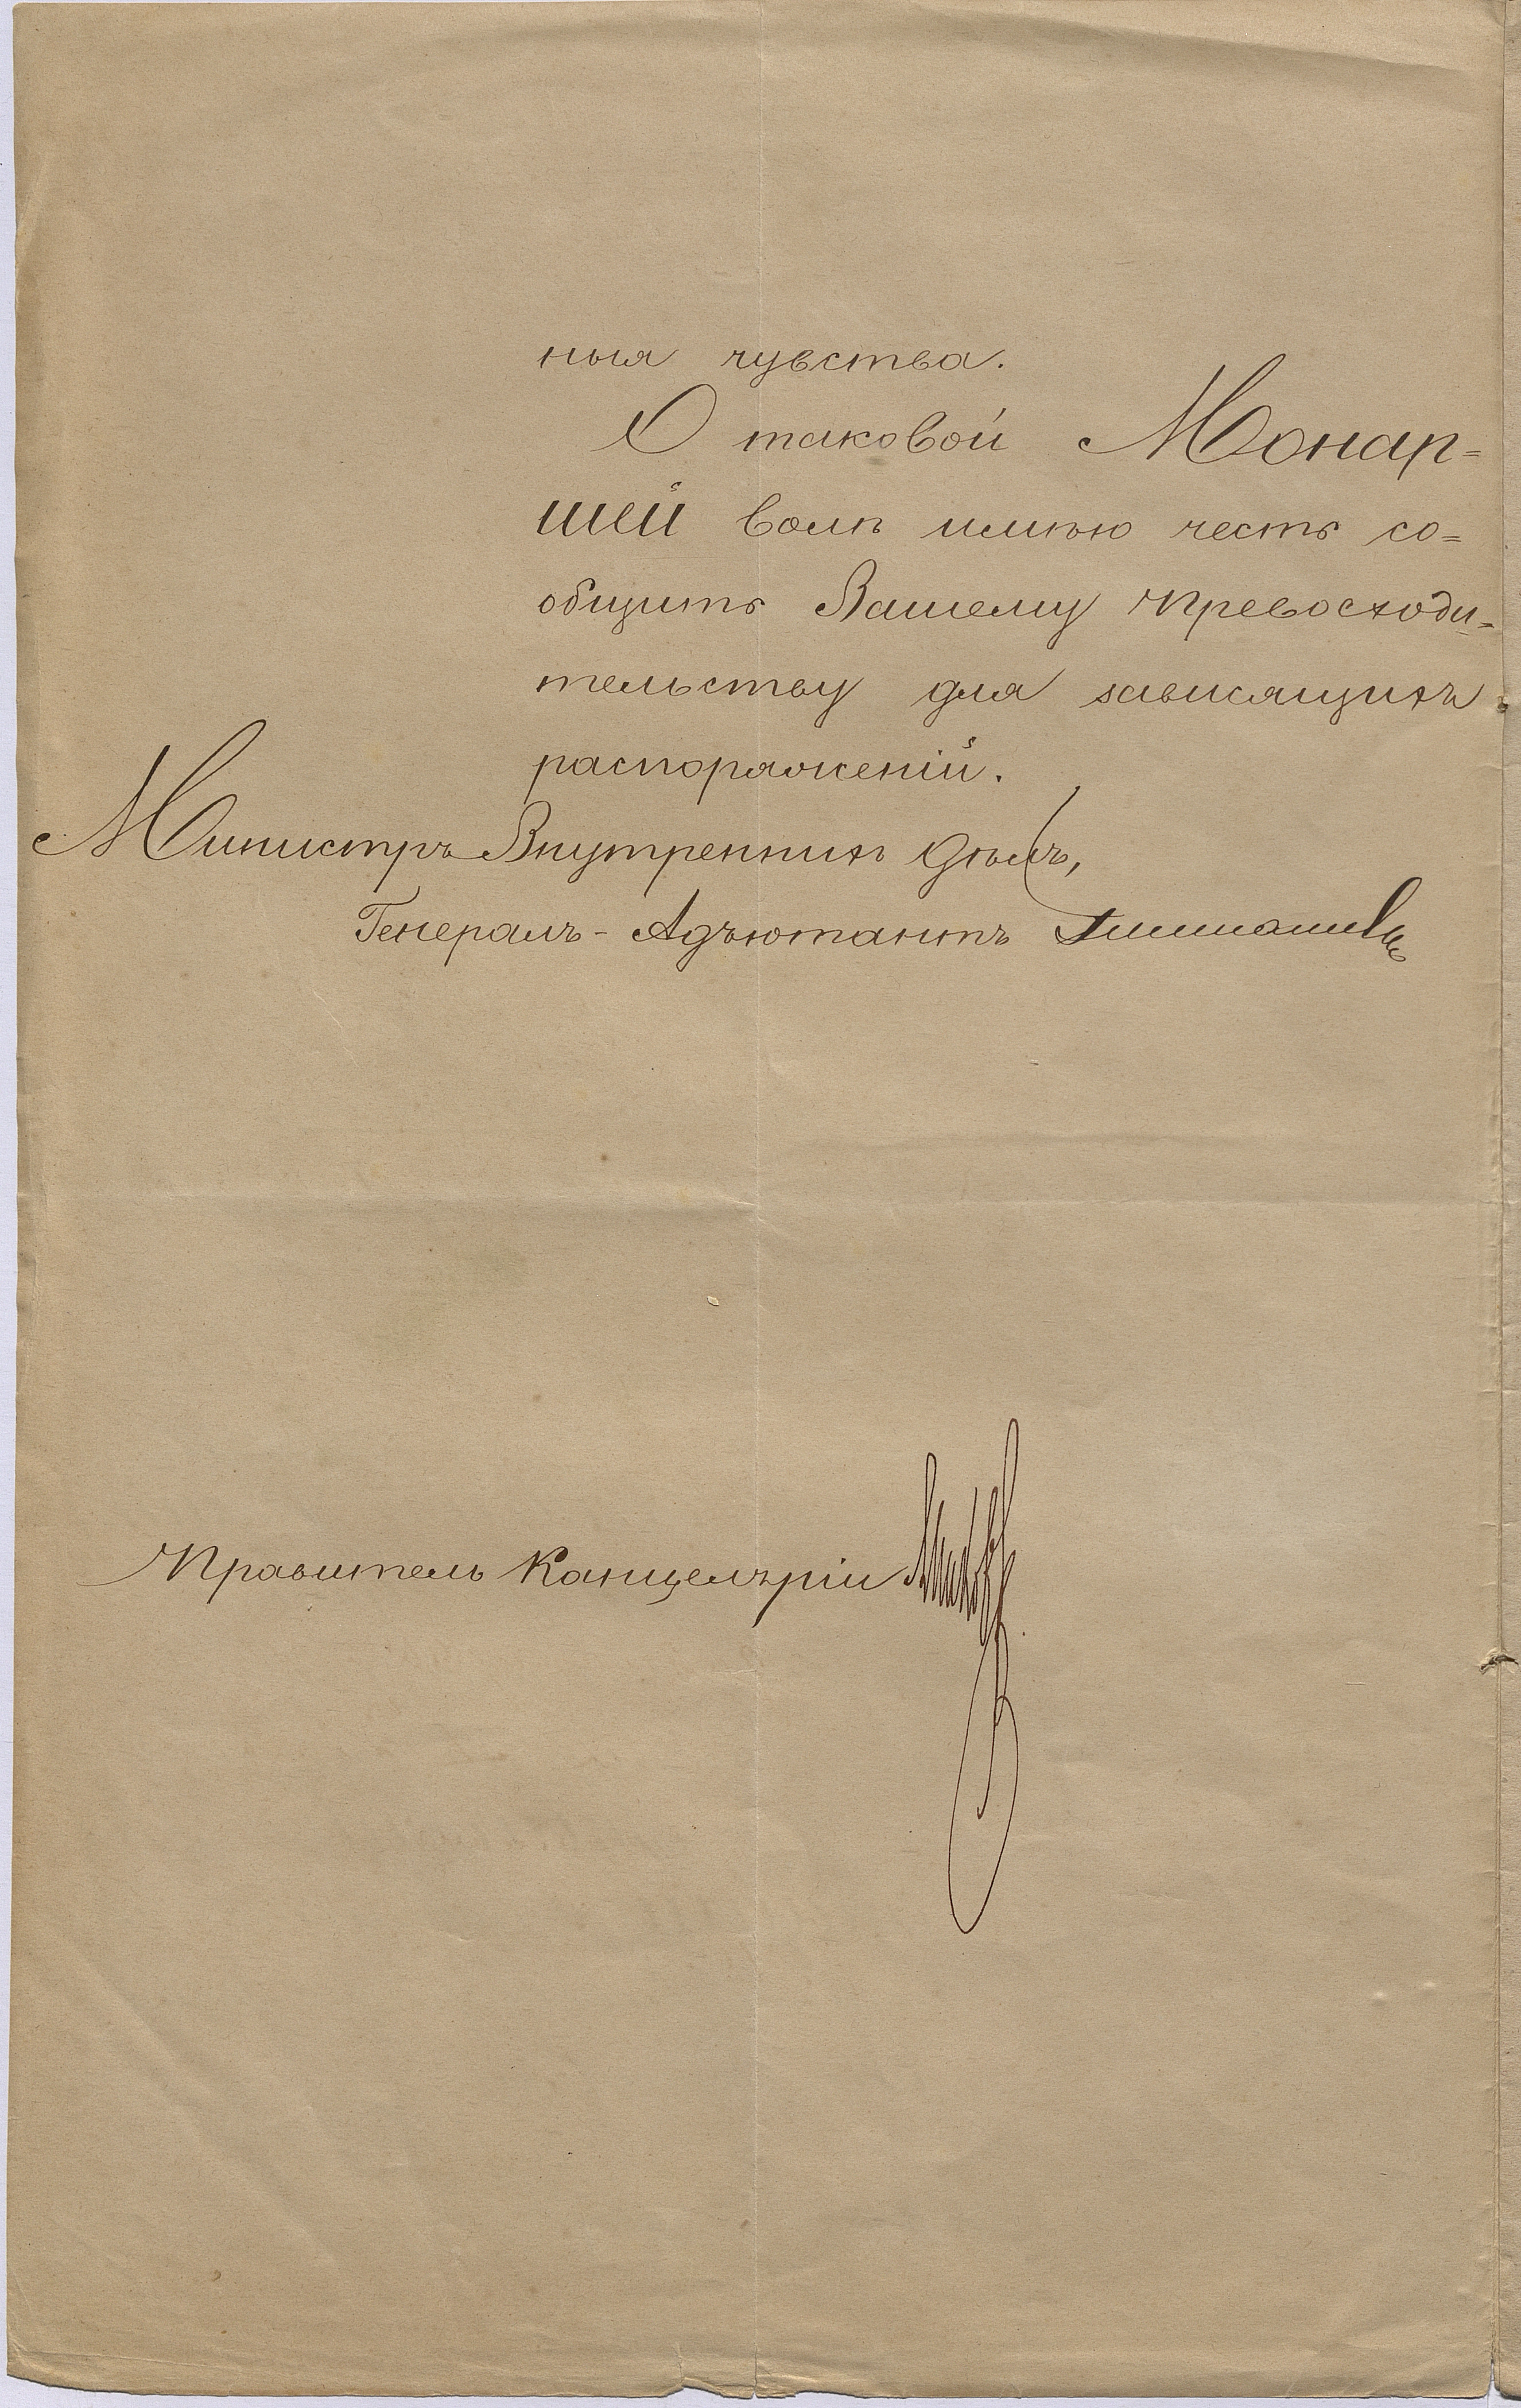 ныя чувства.
О таковой Монар=
шей волѣ имѣю честь со=
общить Вашему Превосходи=
тельству для зависящихъ
распоряженій.
Министръ Внутреннихъ Дѣлъ,
Генералъ-Адъютантъ Тимашевъ
Правитель Канцеляріи